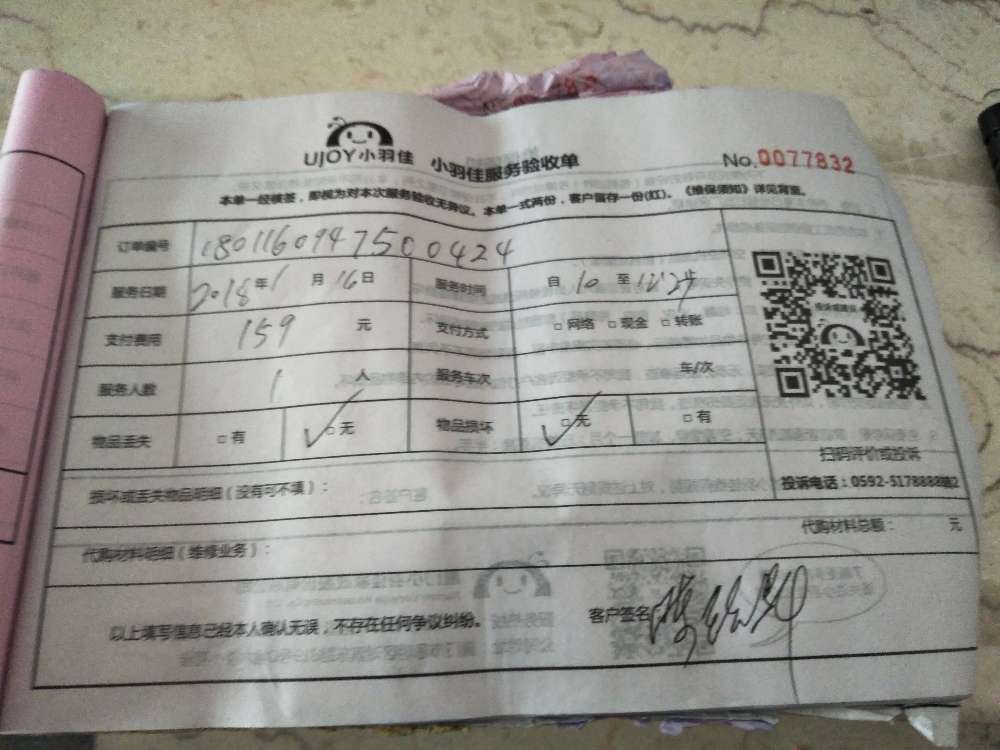 UJOY小羽佳 小羽佳服务验收单 No.0077832
本单一经核签，即视为对本次服务验收无异议。本单一式两份，客户留存一份(红)。《维保须知》详见背面。
订单编号 1801160947500424
服务日期 2018年1月16日 服务时间 自10至12:24
支付费用 159 元 支付方式 □网络 □现金 □转账
服务人数 1 人 服务车次 车/次
物品丢失 □有 □无 物品损坏 □无 □有
扫码评价或投诉
损坏或丢失物品明细（没有可不填）： 投诉电话：0592-5178888转2
代购材料明细（维修业务）： 代购材料总额： 元
以上填写信息已经本人确认无误，不存在任何争议纠纷。 客户签名